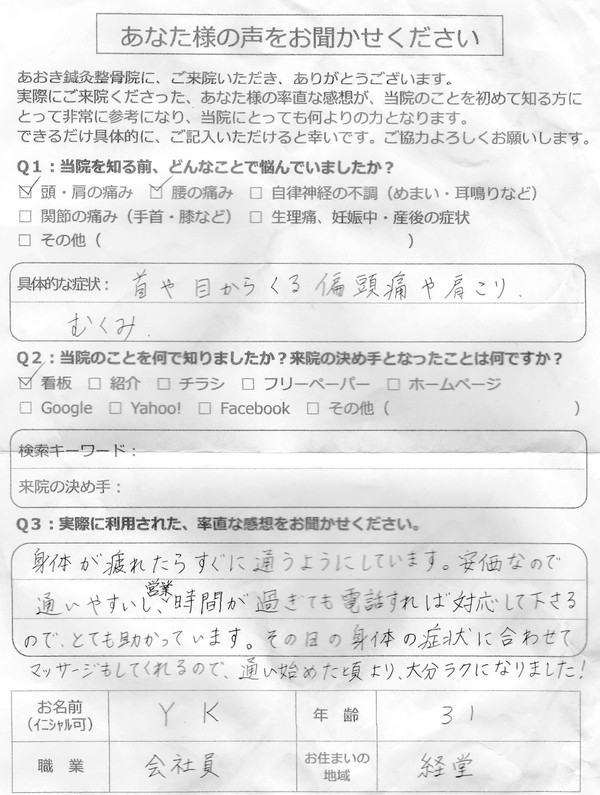 あなた様の声をお聞かせください
あおき鍼灸整骨院に、ご来院いただき、ありがとうございます。
実際にご来院くださった、あなた様の率直な感想が、当院のことを初めて知る方に
とって非常に参考になり、当院にとっても何よりの力となります。
できるだけ具体的に、ご記入いただけると幸いです。ご協力よろしくお願いします。
Q1：当院を知る前、どんなことで悩んでいましたか？
☑ 頭・肩の痛み ☑ 腰の痛み □ 自律神経の不調（めまい・耳鳴りなど）
□ 関節の痛み（手首・膝など） □ 生理痛、妊娠中・産後の症状
□ その他（ ）
具体的な症状： 首や目からくる偏頭痛や肩こり、
むくみ．
Q2：当院のことを何で知りましたか？来院の決め手となったことは何ですか？
☑ 看板 □ 紹介 □ チラシ □ フリーペーパー □ ホームページ
□ Google □ Yahoo! □ Facebook □ その他（ ）
検索キーワード：
来院の決め手：
Q3：実際に利用された、率直な感想をお聞かせください。
身体が疲れたらすぐに通うようにしています。安価なので
通いやすいし、営業時間が過ぎても電話すれば対応して下さる
ので、とても助かっています。その日の身体の症状に合わせて
マッサージもしてくれるので、通い始めた頃より、大分ラクになりました！
お名前 YK 年 齢 31
（イニシャル可）
職 業 会社員 お住まいの地域 経堂